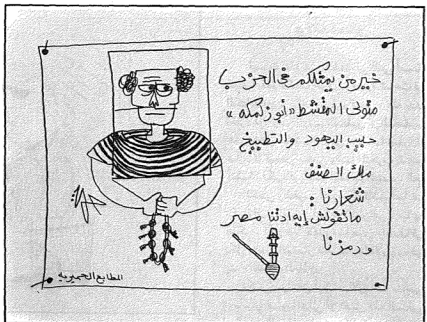 خير من يمثلكم في الحزب
متولى المقشط «أبو زلمكه»
حبيب اليهود والتطبيخ
ملك الصنف
شعارنا:
ماتقولش إيه ادتنا مصر
ورمزنا
المطابع الحميرية